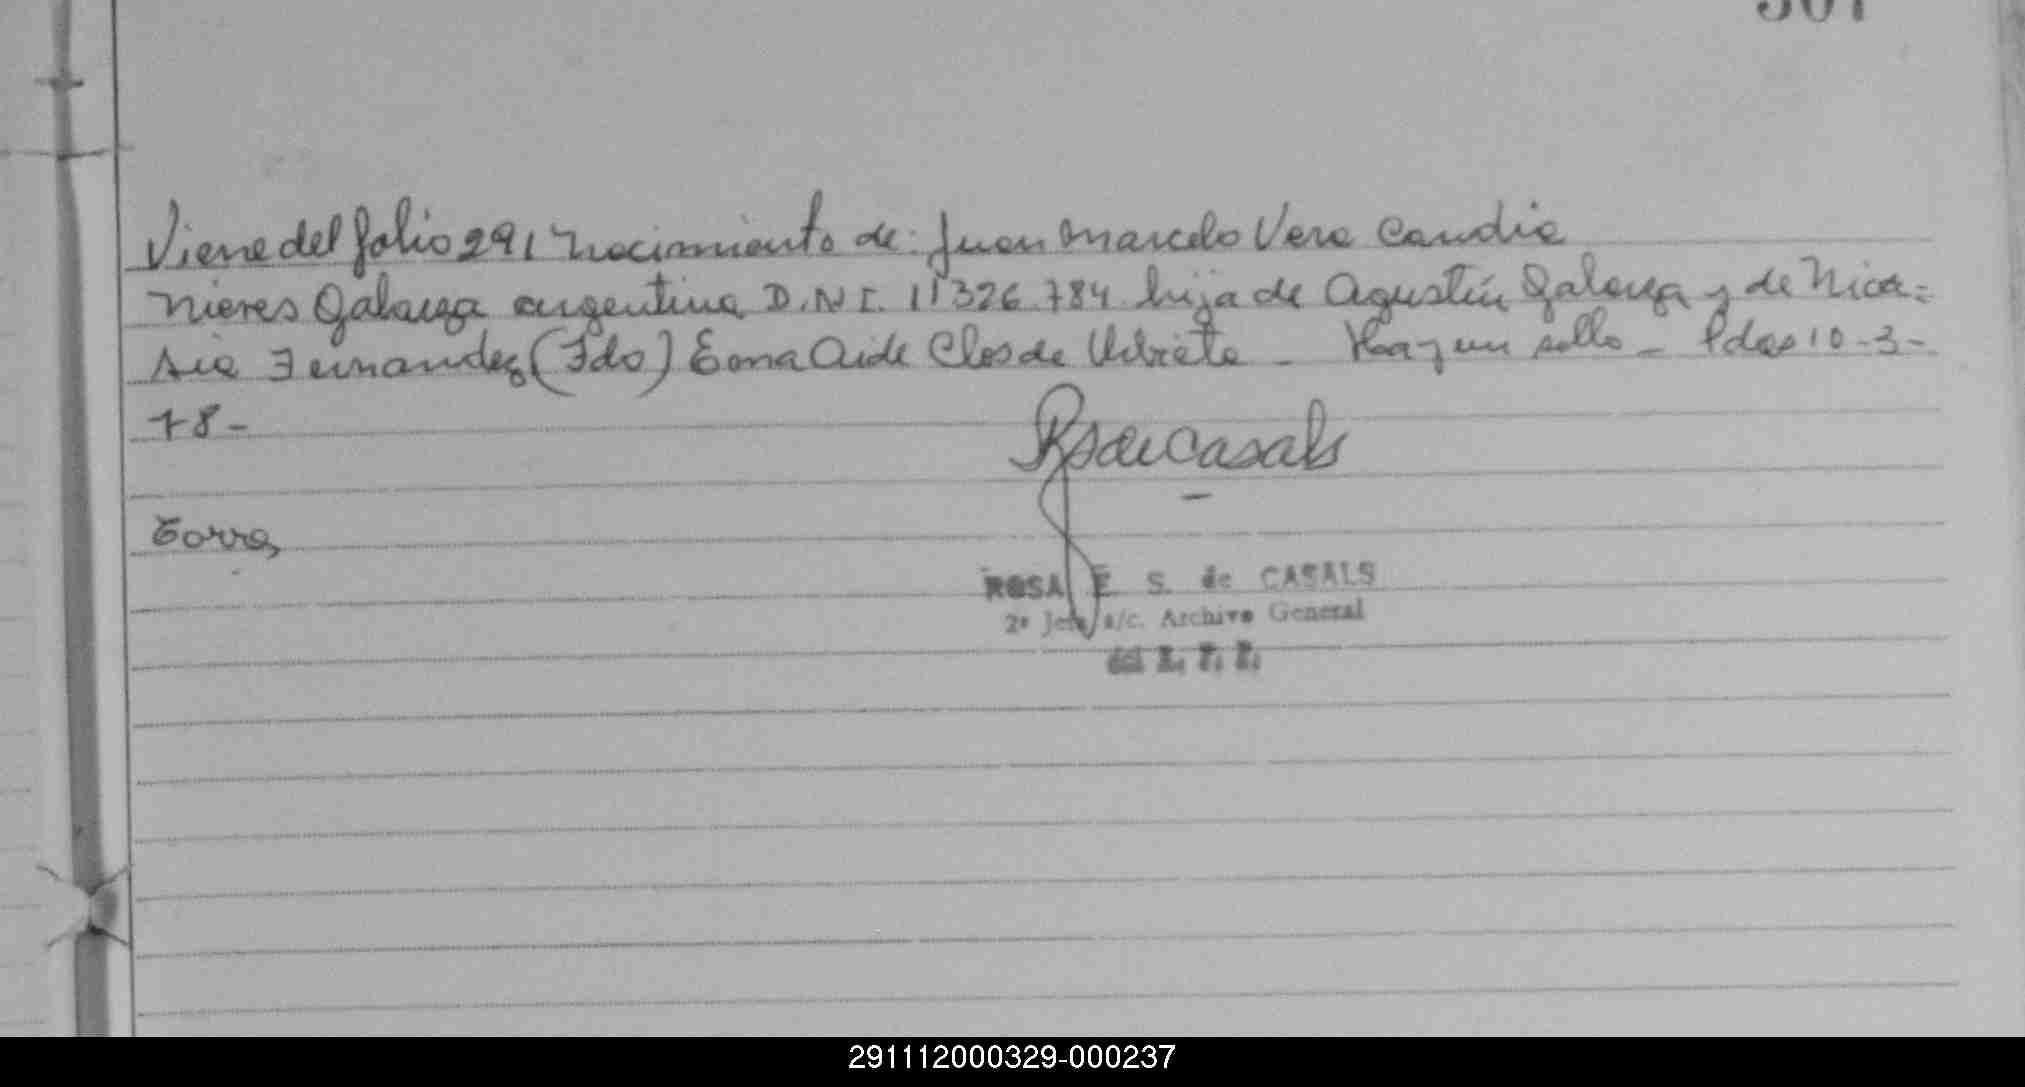 Viene del folio 291 nacimiento de: Juan Marcelo Vera Candia
Nieves Galarza argentina D.N.I. 11326.784 hija de Agustín Galarza y de Nica=
sia Fernandez (Fdo) Ema Aide Clos de - Hay un sello - Pdas 10-3-
78-
RS de Casals
ROSA E. S. de CASALS
2º Jefe a/c. Archivo General
del
291112000329-000237